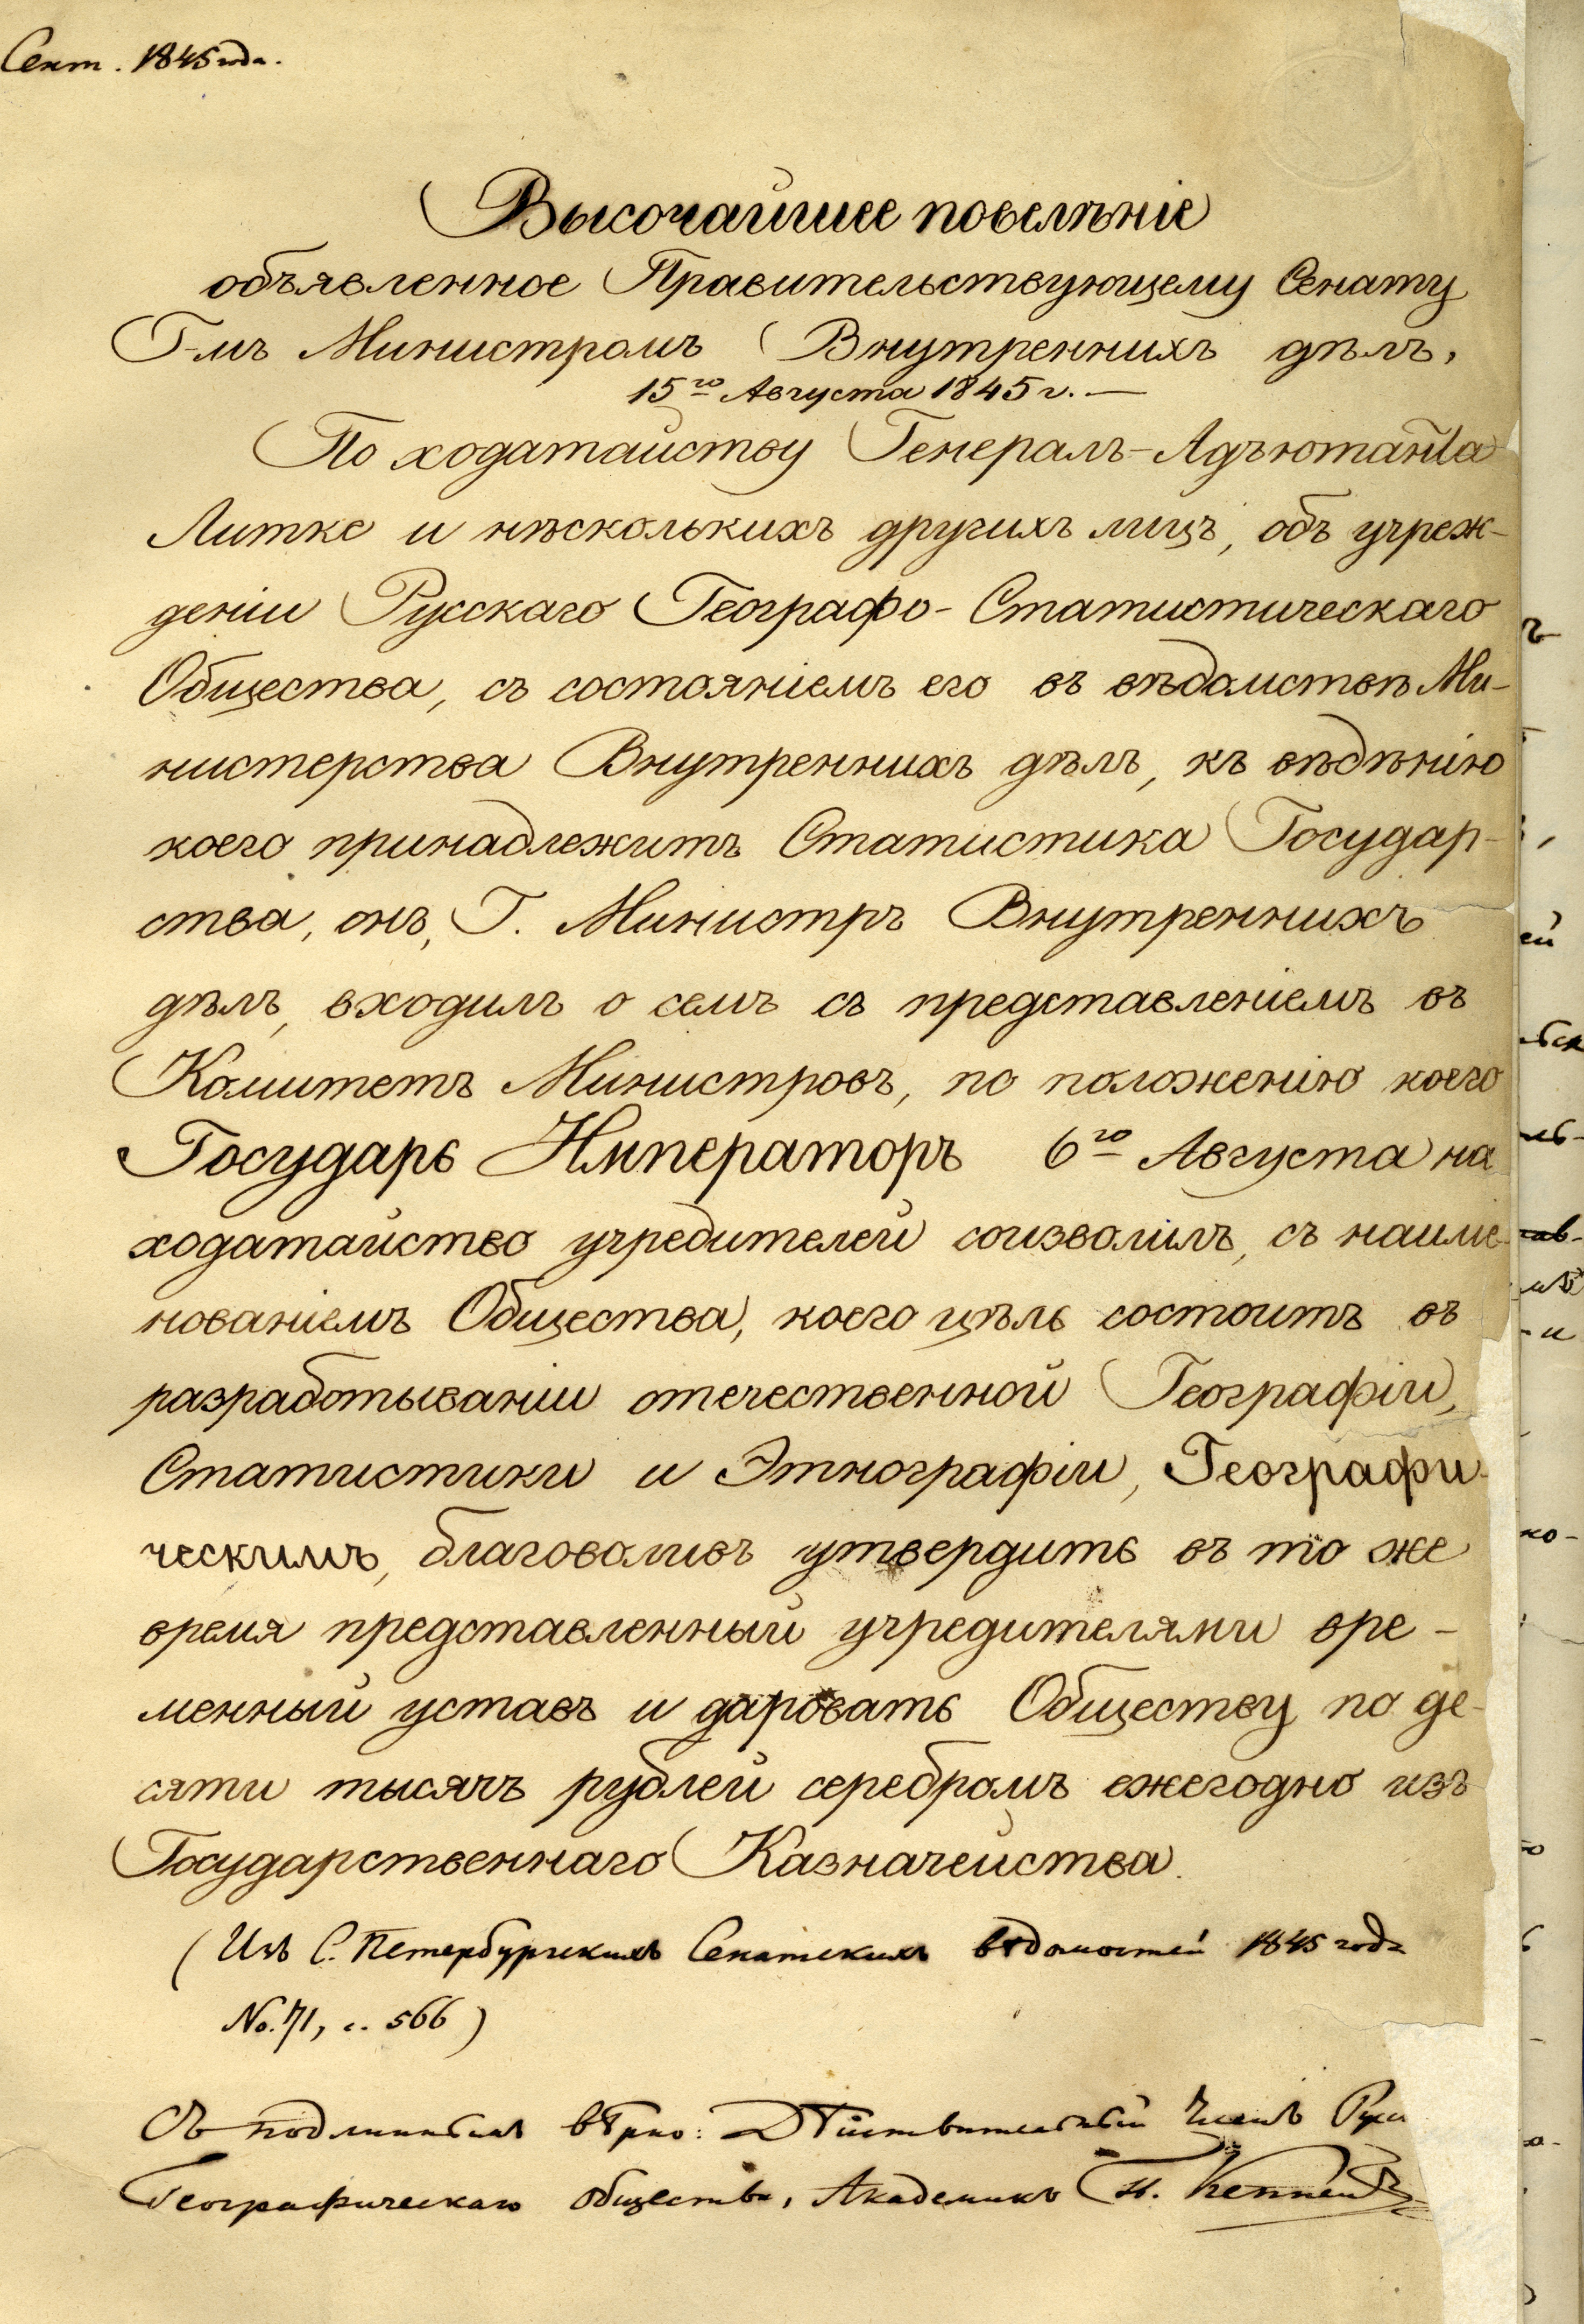 Сент. 1845 года.
Высочайшее повелѣніе
объявленное Правительствующему Сенату
Г-мъ Министромъ Внутреннихъ дѣлъ,
15го Августа 1845 г. —
По ходатайству Генералъ-Адъютанта
Литке и нѣсколькихъ другихъ лицъ, объ учреж-
деніи Русскаго Географо-Статистическаго
Общества, съ состояніемъ его въ вѣдомствѣ Ми-
нистерства Внутреннихъ дѣлъ, къ вѣдѣнію
коего принадлежитъ Статистика Государ-
ства, онъ, Г. Министръ Внутреннихъ
дѣлъ, входилъ о семъ съ представленіемъ въ
Комитетъ Министровъ, по положенію коего
Государь Императоръ 6го Августа на
ходатайство учредителей соизволилъ, съ наиме-
нованіемъ Общества, коего цѣль состоитъ въ
разработываніи отечественной Географіи,
Статистики и Этнографіи, Географи-
ческимъ, благоволивъ утвердить въ то же
время представленный учредителями вре-
менный уставъ и даровать Обществу по де-
сяти тысячъ рублей серебромъ ежегодно изъ
Государственнаго Казначейства.
(Изъ С. Петербургскихъ Сенатскихъ вѣдомостей 1845 года
No. 71, с. 566)
Съ подлиннымъ вѣрно: Дѣйствительный Членъ Русс
Географическаго общества, Академикъ П. Кеппенъ